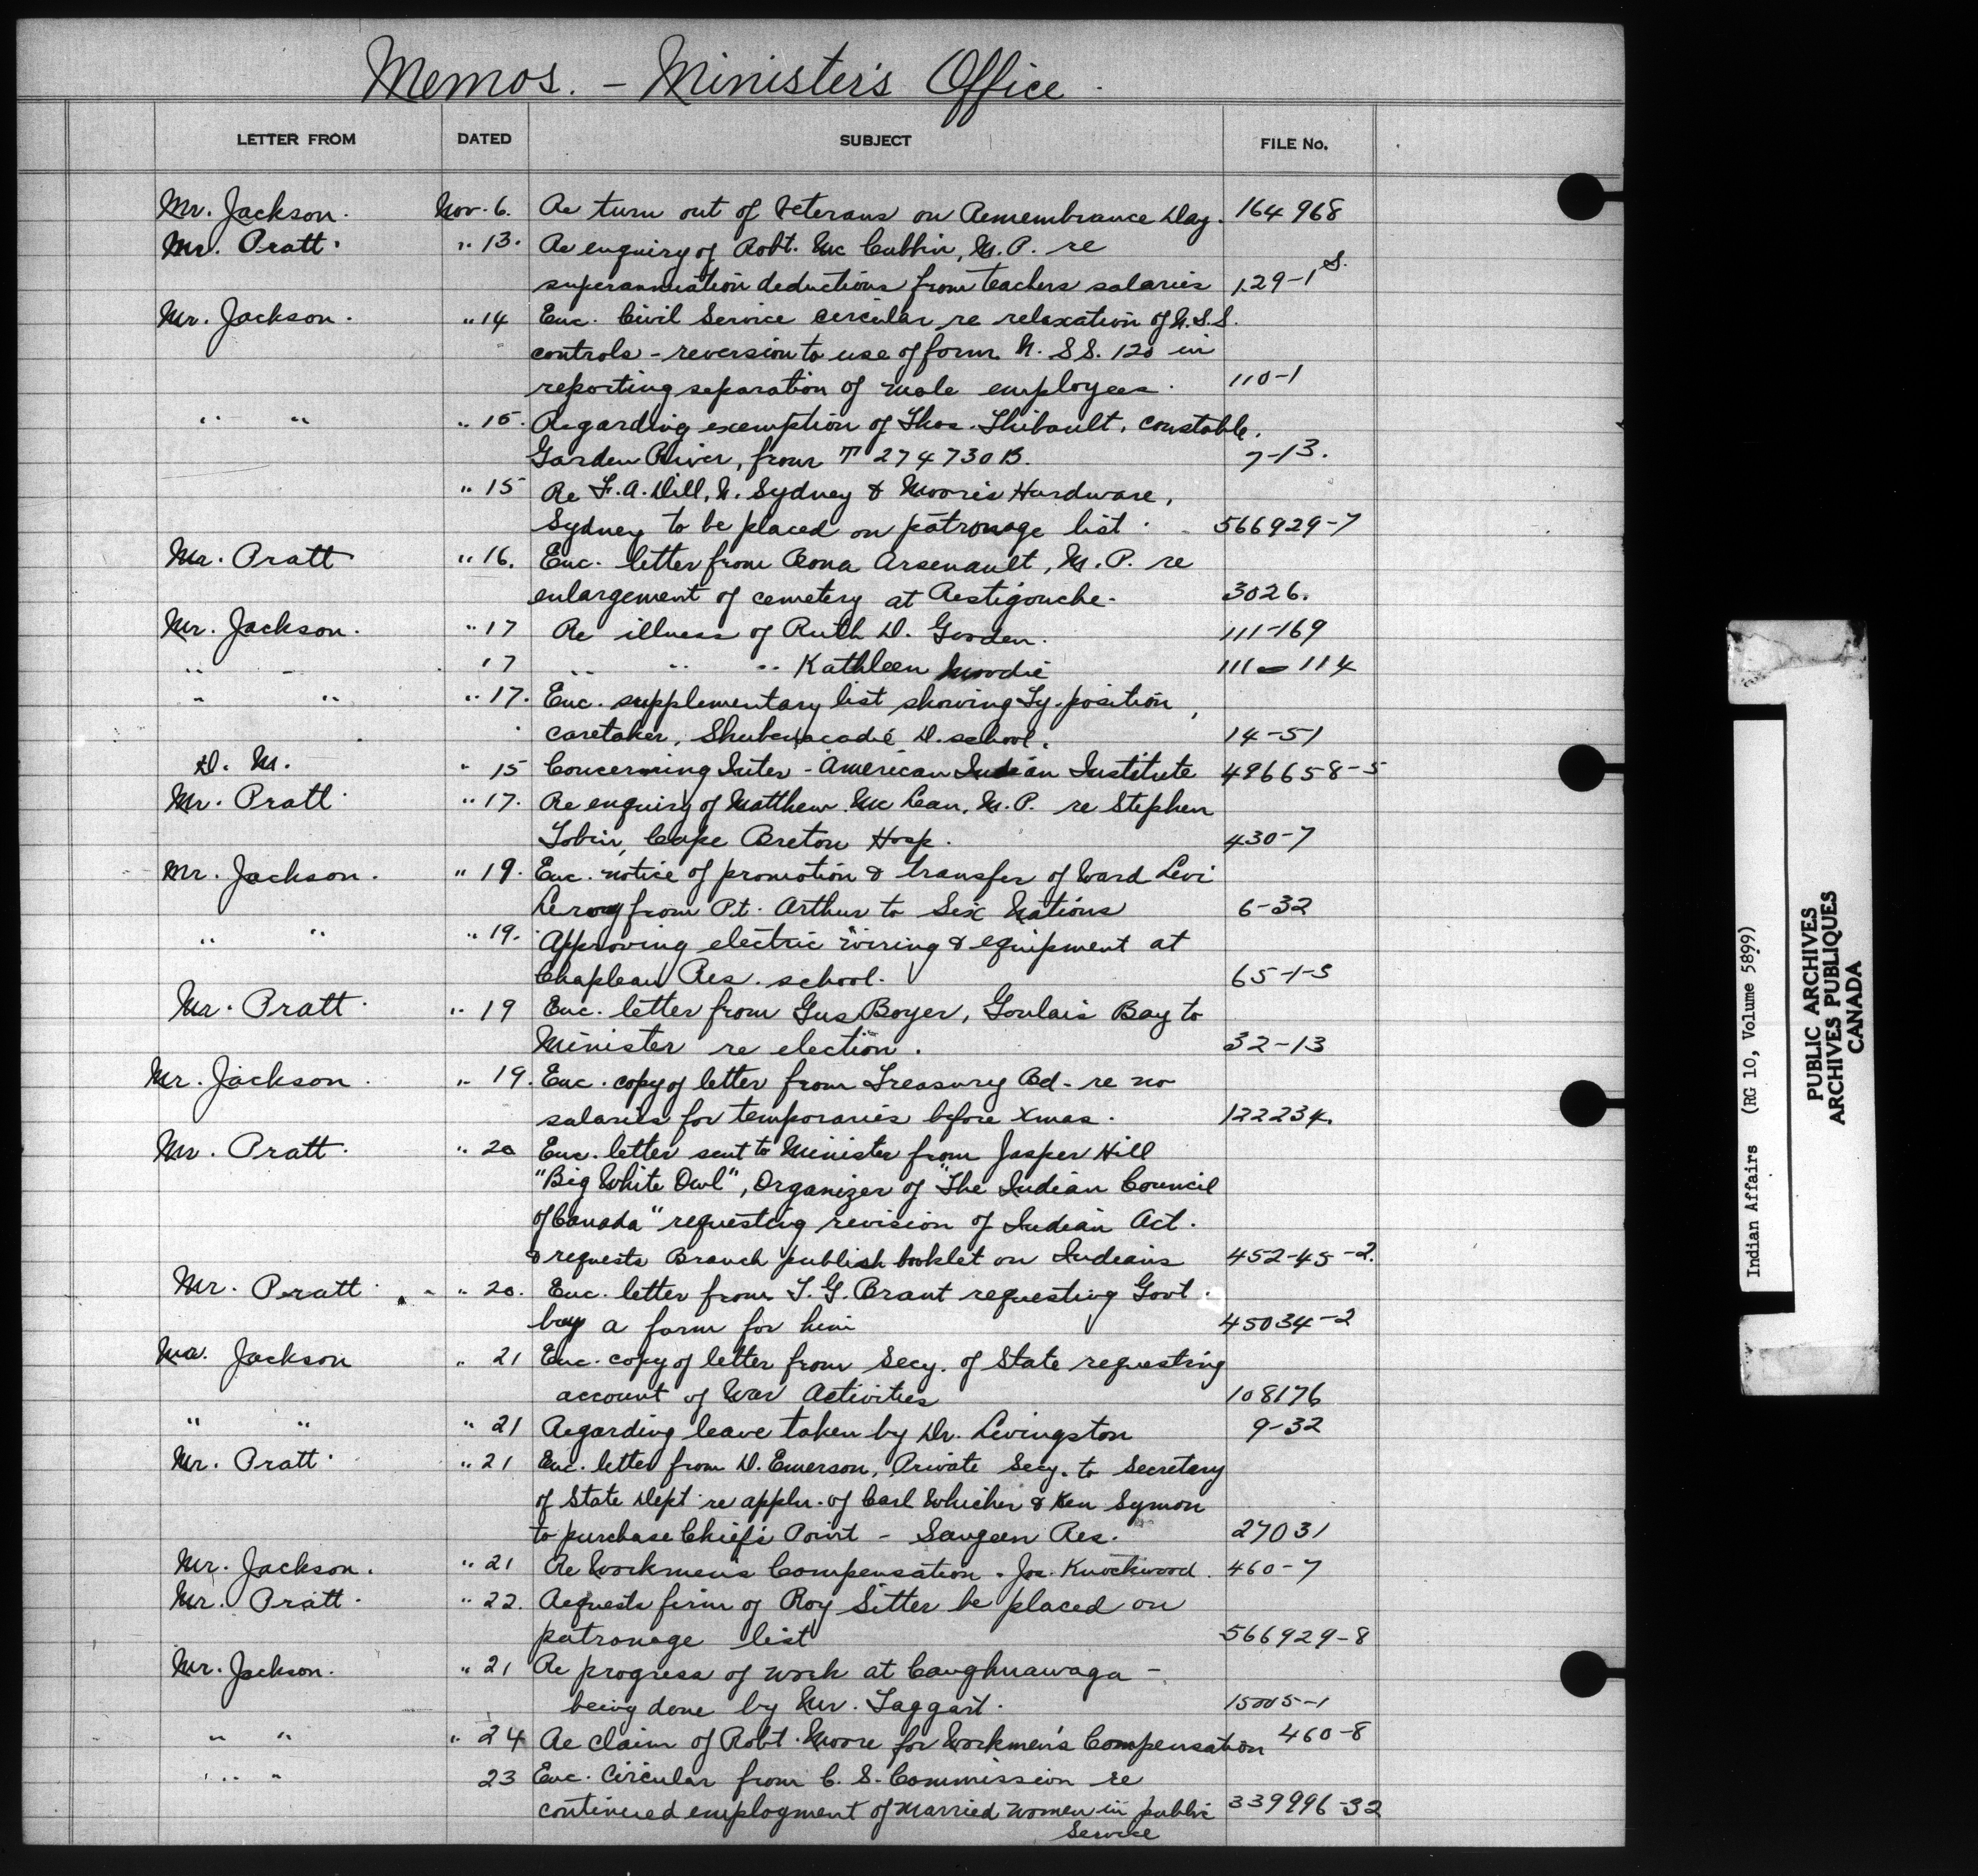 Memos. - Minister's Office.
LETTER FROM DATED SUBJECT FILE No.
Mr. Jackson. Nov. 6. Re turn out of Veterans on Remembrance Day. 164968
Mr. Pratt. " 13. Re enquiry of Robt. McCubbin, M.P. re
superannuation deductions from teachers salaries 129-1 S.
Mr. Jackson. " 14 Enc. Civil Service circular re relaxation of N.S.S.
controls - reversion to use of form N.SS. 120 in
reporting separation of male employees. 110-1
" " " 15. Regarding exemption of Thos. Thibault, constable,
Garden River, from T 274730B. 7-13.
" 15 Re F.A. Dill, N. Sydney & Moore's Hardware,
Sydney to be placed on patronage list. 566929-7
Mr. Pratt " 16. Enc. letter from Bona Arsenault, M.P. re
enlargement of cemetery at Restigouche. 3026.
Mr. Jackson. " 17 Re illness of Ruth D. Gooden. 111-169
" " 17 " " " Kathleen Moodie 111-114
" " " 17. Enc. supplementary list showing Ty. position,
caretaker, Shubenacadie D. school. 14-51
D. M. " 15 Concerning Inter-American Indian Institute 496658-5
Mr. Pratt. " 17. Re enquiry of Matthew McLean, M.P. re Stephen
Tobin, Cape Breton Hosp. 430-7
Mr. Jackson. " 19. Enc. notice of promotion & transfer of Ward Levi
Leroy from Pt. Arthur to Six Nations 6-32
" " " 19. Approving electric wiring & equipment at
Chapleau Res. school. 65-1-3
Mr. Pratt. " 19 Enc. letter from Gus Boyer, Goulais Bay to
Minister re election. 32-13
Mr. Jackson. " 19. Enc. copy of letter from Treasury Bd. re no
salaries for temporaries before Xmas. 122234.
Mr. Pratt. " 20 Enc. letter sent to Minister from Jasper Hill
"Big White Owl", Organizer of "The Indian Council
of Canada" requesting revision of Indian Act.
& requests Branch publish booklet on Indians 452-45-2.
Mr. Pratt. " 20. Enc. letter from T.G. Brant requesting Govt.
buy a farm for him 45034-2
Mr. Jackson " 21 Enc. copy of letter from Secy. of State requesting
account of War Activities 108176
" " " 21 Regarding leave taken by Dr. Livingston 9-32
Mr. Pratt. " 21 Enc. letter from D. Emerson, Private Secy. to Secretary
of State Dept re appln. of Carl Whicher & Ken Symon
to purchase Chief's Point - Saugeen Res. 27031
Mr. Jackson. " 21 Re Workmen's Compensation. Jos. Knockwood. 460-7
Mr. Pratt. " 22. Requests firm of Roy Sitter be placed on
patronage list 566929-8
Mr. Jackson. " 21 Re progress of work at Caughnawaga -
being done by Mr. Taggart. 15005-1
" " " 24 Re claim of Robt. Moore for Workmen's Compensation 460-8
" " 23 Enc. Circular from C.S. Commission re
continued employment of married women in public 339996-32
Service
Indian Affairs (RG 10, Volume 5899)
PUBLIC ARCHIVES
ARCHIVES PUBLIQUES
CANADA